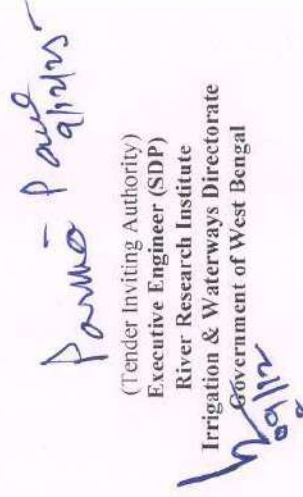 9/12/25
(Tender Inviting Authority)
Executive Engineer (SDP)
River Research Institute
Irrigation & Waterways Directorate
Government of West Bengal
09/12